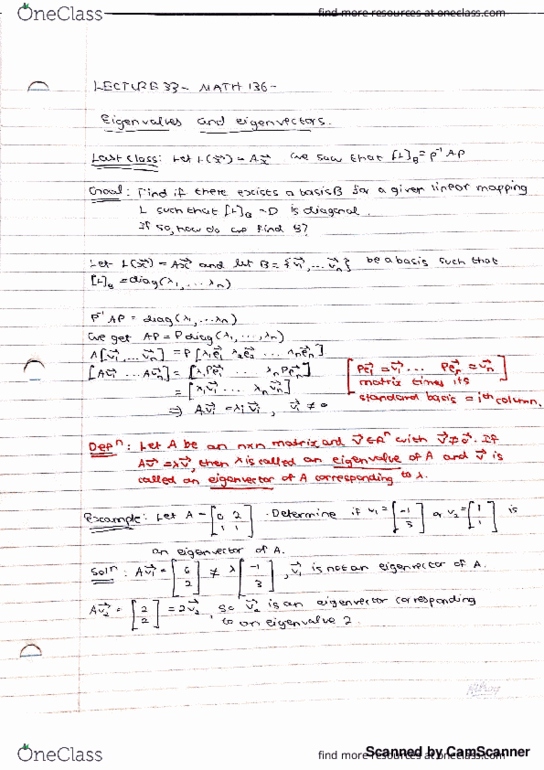 OneClass
find more resources at oneclass.com
LECTURE 33 - MATH 136 -
Eigenvalues and eigenvectors.
Last class: Let L(x⃗) = Ax⃗ we saw that [L]_B = P⁻¹AP
Goal: Find if there excists a basis B for a given linear mapping
L such that [L]_B = D is diagonal.
If so, how do we find B?
Let L(x⃗) = Ax⃗ and let B = {v⃗₁, ... v⃗ₙ} be a basis such that
[L]_B = diag(λ₁, ... λₙ)
P⁻¹AP = diag(λ₁, ... λₙ)
We get AP = P diag(λ₁, ..., λₙ)
A[v⃗₁, ... v⃗ₙ] = P[λ₁e⃗₁ λ₂e⃗₂ ... λₙe⃗ₙ]
[Av⃗₁ ... Av⃗ₙ] = [λ₁Pe⃗₁ ... λₙPe⃗ₙ]
= [λ₁v⃗₁ ... λₙv⃗ₙ]
⇒ Av⃗ᵢ = λᵢv⃗ᵢ, v⃗ᵢ ≠ 0
[Pe⃗₁ = v⃗₁ ... Pe⃗ₙ = v⃗ₙ
matrix times its
standard basis = ith column.]
Defⁿ: Let A be an nxn matrix and v⃗ ∈ Rⁿ with v⃗ ≠ 0⃗. If
Av⃗ = λv⃗, then λ is called an eigenvalue of A and v⃗ is
called an eigenvector of A corresponding to λ.
Example: Let A = [0 2; 1 1]. Determine if v₁ = [-1; 3] or v₂ = [1; 1] is
an eigenvector of A.
Solⁿ: Av⃗₁ = [6; 2] ≠ λ[-1; 3], v⃗₁ is not an eigenvector of A.
Av⃗₂ = [2; 2] = 2v⃗₂, so v⃗₂ is an eigenvector corresponding
to an eigenvalue 2.
OneClass
find more resources at oneclass.com
Scanned by CamScanner